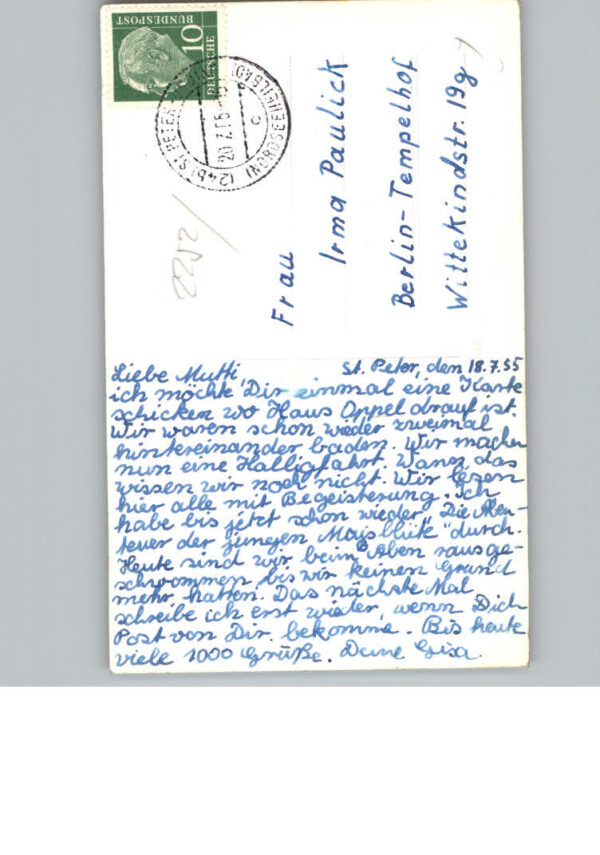 DEUTSCHE
BUNDESPOST
10
(24b) ST. PETER-
(NORDSEEHEILBAD)
20.7.55
c
2252/
Frau
Irma Paulick
Berlin-Tempelhof
Wittekindstr. 19g
St. Peter, den 18.7.55
Liebe Mutti
ich möchte Dir einmal eine Karte
schicken wo Haus Appel drauf ist.
Wir waren schon wieder zweimal
hintereinander baden. Wir machen
nun eine Halligfahrt. Wann, das
wissen wir noch nicht. Wir lesen
hier alle mit Begeisterung. Ich
habe bis jetzt schon wieder „Die Aben-
teuer der jungen Maisblüte" durch.
Heute sind wir beim Aben rausge-
schwommen bis wir keinen Grund
mehr hatten. Das nächste Mal
schreibe ich erst wieder, wenn Dich
Post von Dir bekomme. Bis heute
viele 1000 Grüße. Deine Gisa.